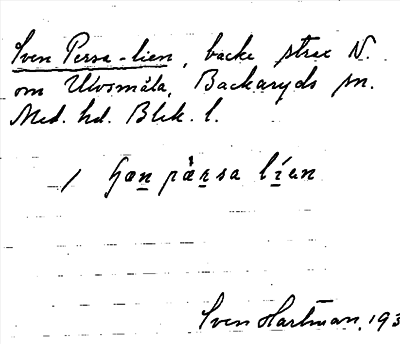 Sven Persa-lien, backe strax N.
om Ulvsmåla, Backaryds sn.
Med. hd. Blek. l.
/ pæ̀rsa lían
Sven Hartman, 193